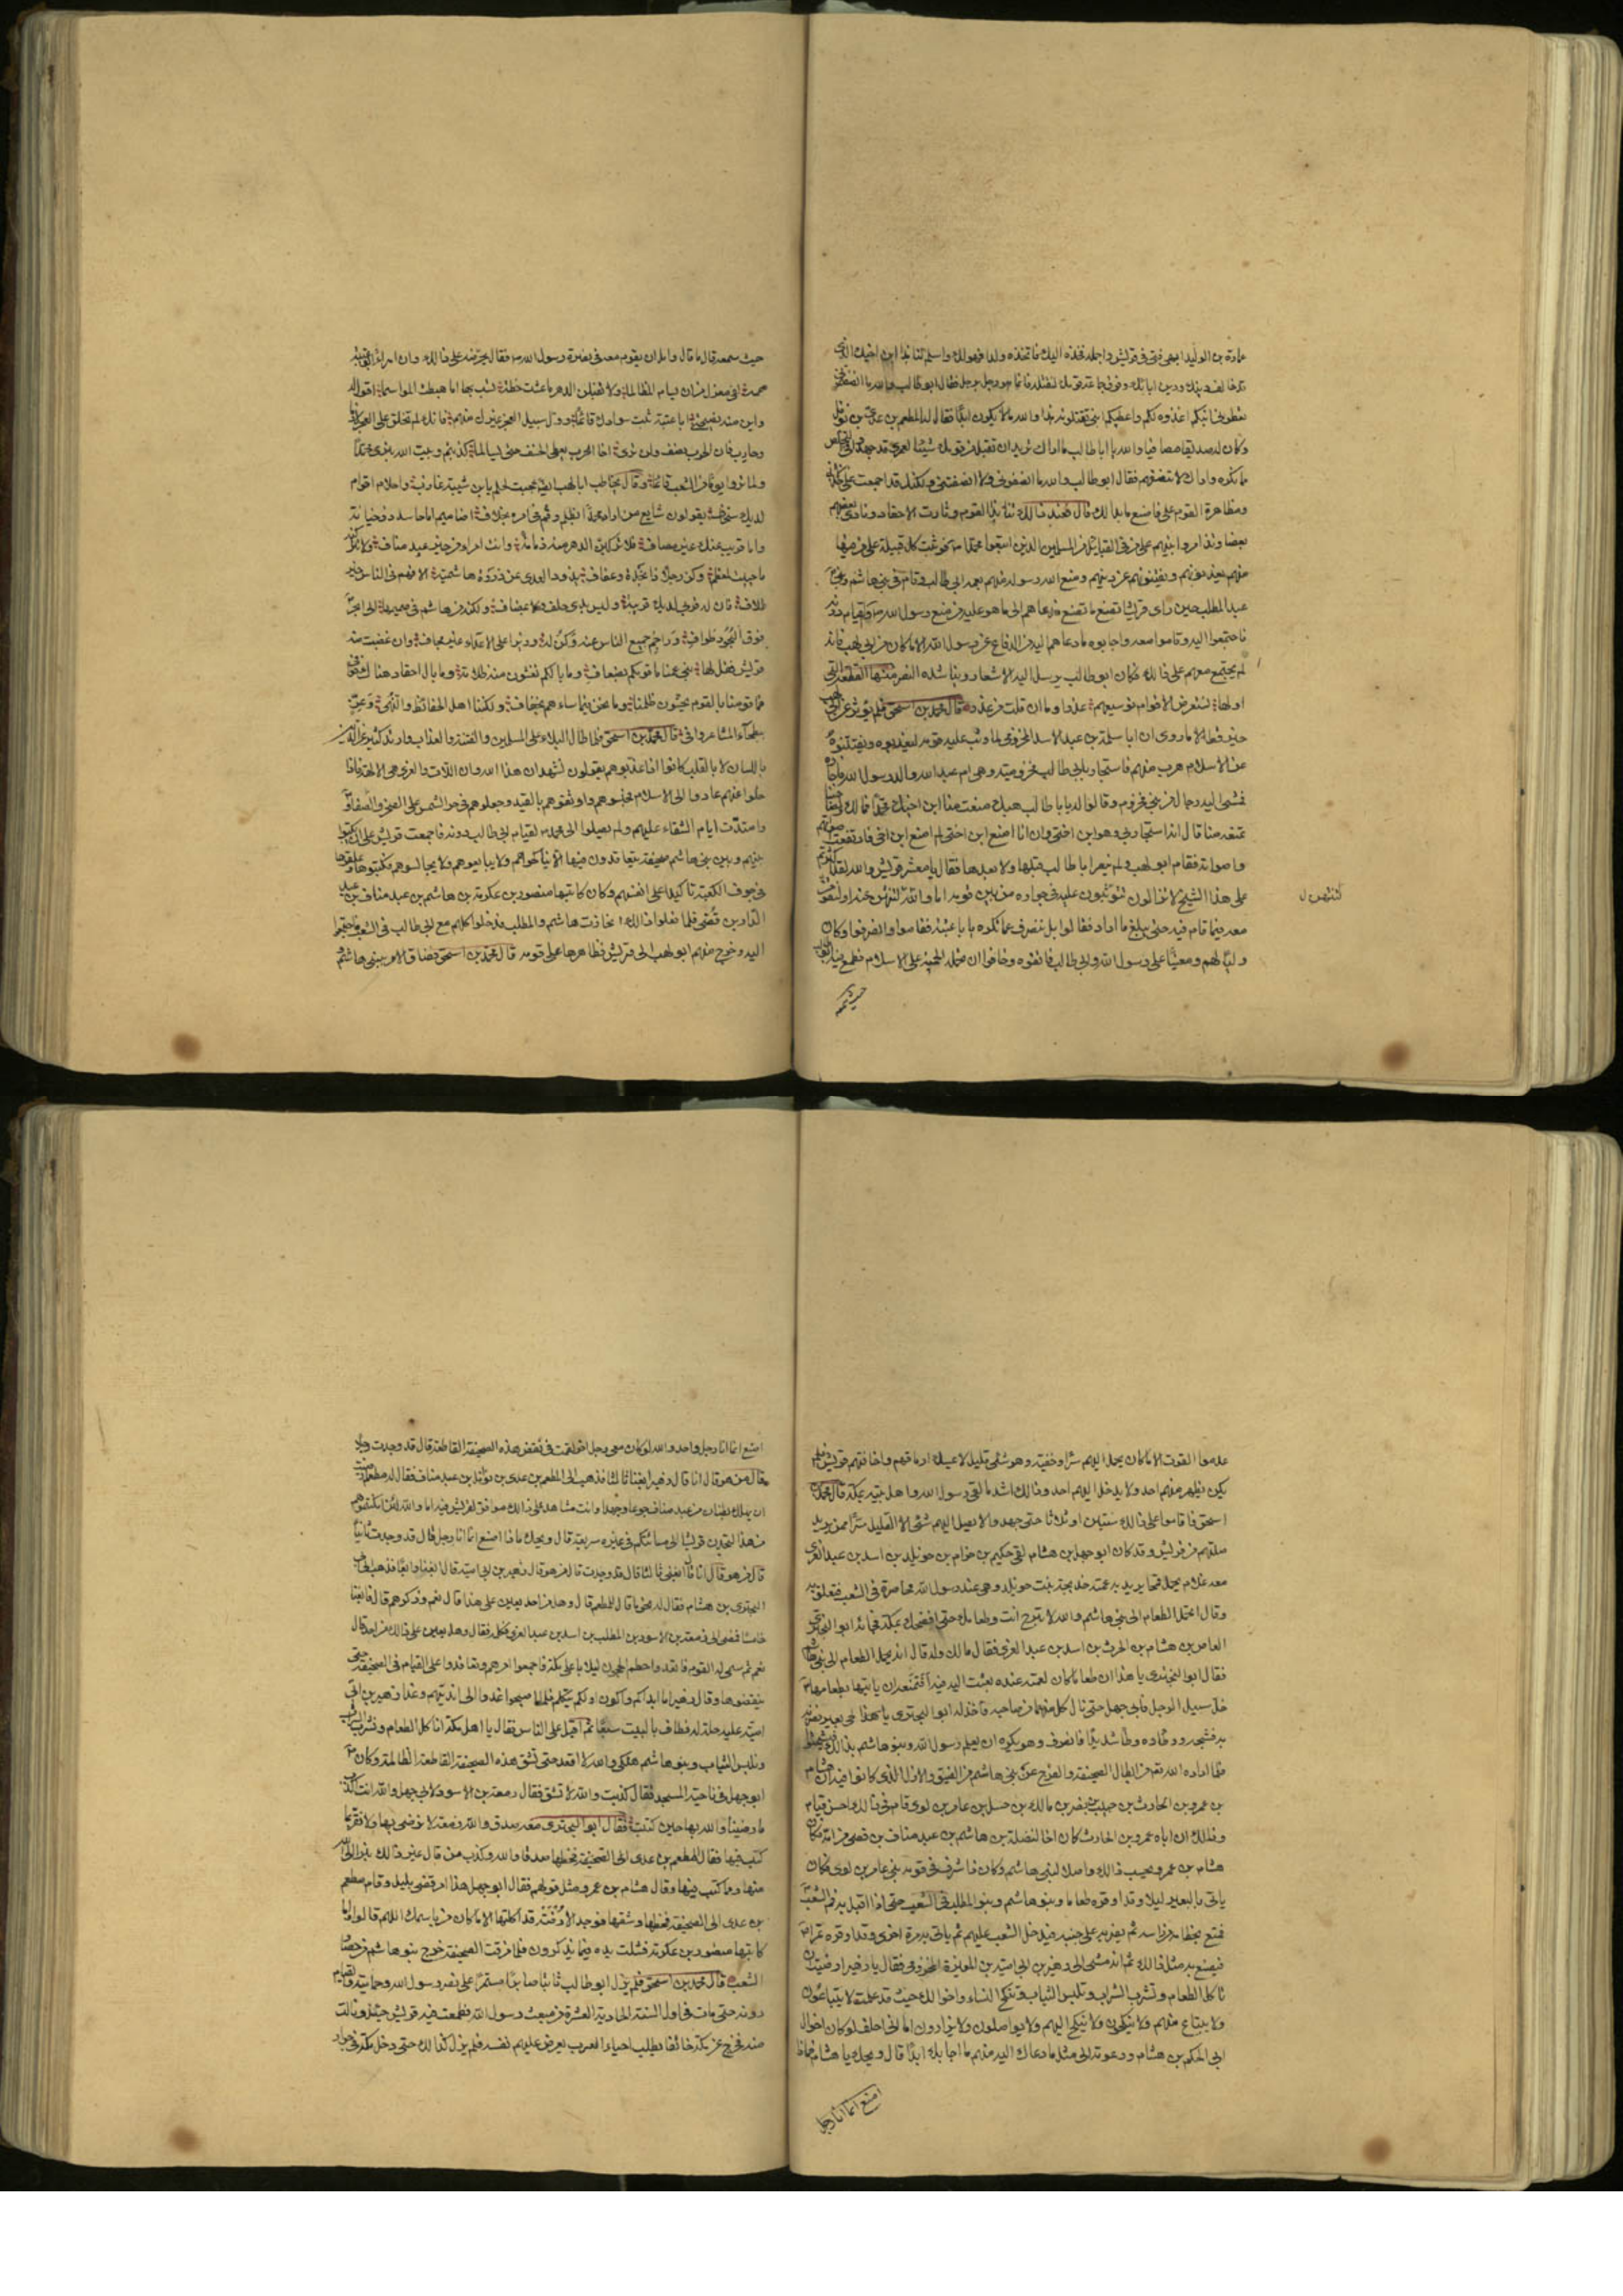 عمارة بن الوليد ابهى فتى في قريش واجمله فخذه اليك فاتخذه ولدا فهو لك واسلم لنا هذا ابن اخيك الذي
قد خالف دينك ودين ابائك وفرق جماعة قومك لنقتله فانما هو رجل برجل فقال ابو طالب والله ما انصفتموني
تعطوني ابنكم اغذوه لكم واعطيكم ابني تقتلونه هذا والله ما لا يكون ابدا فقال له المطعم بن عدي بن نوفل
وكان له صديقا مصافيا والله يا ابا طالب ما اراك تريد ان تقبل من قومك شيئا لعمري قد جهدوا في التخلص
ما تكره واراك لا تنصفهم فقال ابو طالب والله ما انصفوني ولا انصفتني ولكنك قد اجمعت على
ومظاهرة القوم علي فاصنع ما بدا لك قال فعند ذلك تنابذ القوم وثارت الاحقاد ونادى بعضهم
بعضا وتذامروا بينهم على من في القبايل من المسلمين الذين اتبعوا محمدا فوثبت كل قبيلة على من فيها
منهم يعذبونهم ويفتنونهم عن دينهم ومنع الله رسوله منهم بعمه ابي طالب وقام في بني هاشم وبني
عبد المطلب حين راى قريشا تصنع ما تصنع فدعاهم الى ما هو عليه من منع رسول الله والقيام دونه
فاجتمعوا اليه وقاموا معه واجابوه ما دعاهم اليه من الدفاع عن رسول الله الا ما كان من ابي لهب فانه
لم يجتمع معهم على ذلك فكان ابو طالب يرسل اليه الاشعار ويناشده النصر منها القطعة التي
اولها
قال محمد بن اسحق فلم يؤثر عن ابي لهب
خير قط الا ما روى ان ابا سلمة بن عبد الاسد المخزومي لما وثب عليه قومه ليعذبوه ويفتنوه
عن الاسلام هرب منهم فاستجار بابي طالب وام ابي طالب مخزومية وهي ام عبد الله والد رسول الله فاجاره
فمشى اليه رجال من بني مخزوم وقالوا له يا ابا طالب هبك منعت منا ابن اخيك محمدا فما لك ولصاحبنا
تمنعه منا قال انه استجار بي وهو ابن اختي وان انا لم امنع ابن اختي لم امنع ابن اخي فارتفعت اصواتهم
واصواته فقام ابو لهب ولم ينصر ابا طالب قبلها ولا بعدها فقال يا معشر قريش والله لقد اكثرتم
على هذا الشيخ لا تزالون تتوثبون عليه في جواره من بين قومه اما والله لتنتهن عنه او لنقومن
معه فيما قام فيه حتى يبلغ ما اراد فقالوا بل ننصرف عما تكره يا با عتبة فقاموا وانصرفوا وكان
وليا لهم ومعينا على رسول الله وابي طالب فاتقوه وخافوا ان تحمله الحمية على الاسلام فطمع فيه ابو طالب
حيث سمعه
لتنتهن ل
حيث سمعه قال ما قال وامل ان يقوم معه في نصرة رسول الله فقال يحرضه على ذلك وان امرا ابو عتيبة
عمه لفي معزل من ان يسام المظالما ولا تقبلن الدهر ما عشت خطة تسب بها اما هبطت المواسما اقول له
واين منه نصيحتي ابا عتبة ثبت سوادك قائما وول سبيل العجز غيرك منهم فانك لم تخلق على العجز لازما
وحارب فان الحرب نصف ولن ترى اخا الحرب يعطى الخسف حتى يسالما كذبتم وبيت الله نبزى محمدا
ولما تروا يوما من الشعب قائما وقال يخاطب ابا لهب ايضا عجبت لحلم يابن شيبة عازب واحلام اقوام
لديك سخاف يقولون شايع من اراد محمدا بظلم وقم في امره بخلاف اضاميم اما حاسد ذو خيانة
واما قريب عنك غير مصاف فلا تركبن الدهر منه ذمامة وانت امرؤ من خير عبد مناف ولا تتركنه
ما حييت لمعظم وكن رجلا ذا نجدة وعفاف يذود العدى عن ذروة هاشمية الافهم في الناس خير
الاف فان له قربى لديك قريبة وليس بذي حلف ولا بمضاف ولكنه من هاشم في صميمها الى ابحر
فوق البحور طواف وزاحم جميع الناس عنه وكن له وزيرا على الاعداء غير مجاف وان غضبت منه
قريش فقل لها بني عمنا ما قومكم بضعاف وما بالكم تغشون منه ظلامة وما بال احقاد هناك خوافي
فما قومنا بالقوم يخشون ظلمنا وما نحن فيما ساءهم بخفاف ولكننا اهل الحفائظ والنهى وعز
ببطحاء المشاعر واف قال محمد بن اسحق فلما طال البلاء على المسلمين والفتنة والعذاب وارتد كثير عن الدين
باللسان لا بالقلب كانوا اذا عذبوهم يقولون نشهد ان هذا الله وان اللات والعزى هي الالهة فاذا
خلوا عنهم عادوا الى الاسلام فحبسوهم واوثقوهم بالقيد وجعلوهم في حر الشمس على الصخر والصفا
وامتدت ايام الشقاء عليهم ولم يصلوا الى محمد لقيام ابي طالب دونه فاجمعت قريش على ان يكتبوا
بينهم وبين بني هاشم صحيفة يتعاقدون فيها الا يناكحوهم ولا يبايعوهم ولا يجالسوهم فكتبوها وعلقوها
في جوف الكعبة تاكيدا على انفسهم وكان كاتبها منصور بن عكرمة بن هاشم بن عبد مناف بن عبد
الدار بن قصي فلما فعلوا ذلك انحازت هاشم والمطلب فدخلوا كلهم مع ابي طالب في الشعب فاجتمعوا
اليه وخرج منهم ابو لهب الى قريش فظاهرها على قومه قال محمد بن اسحق فضاق الامر ببني هاشم
عدموا القوت الا ما كان يحمل اليهم سرا وخفية وهو شئ قليل لا يمسك ارماقهم واخافتهم قريش فلم
يكن يظهر منهم احد ولا يدخل اليهم احد وذلك اشد ما لقي رسول الله واهل بيته بمكة قال محمد بن
اسحق فاقاموا على ذلك سنتين او ثلاثا حتى جهدوا لا يصل اليهم شئ الا القليل سرا ممن يريد
صلتهم من قريش وقد كان ابو جهل بن هشام لقي حكيم بن حزام بن خويلد بن اسد بن عبد العزى
معه غلام يحمل قمحا يريد به عمته خديجة بنت خويلد وهي عند رسول الله محاصرة في الشعب فتعلق به
وقال اتحمل الطعام الى بني هاشم والله لا تبرح انت وطعامك حتى افضحك بمكة فجاءه ابو البختري
العاص بن هشام بن الحرث بن اسد بن عبد العزى فقال ما لك وله قال انه يحمل الطعام الى بني هاشم
فقال ابو البختري يا هذا ان طعاما كان لعمته عنده بعثت اليه فيه افتمنعه ان ياتيها بطعامها
خل سبيل الرجل فابى جهل حتى نال كل منهما من صاحبه فاخذ له ابو البختري لحي بعير فضربه
به فشجه ووطئه وطا شديدا فانصرف وهو يكره ان يعلم رسول الله وبنو هاشم بذلك فيشمتوا
فلما اراد الله تعم من ابطال الصحيفة والفرج عن بني هاشم من الضيق والازل الذي كانوا فيه ان هشام
بن عمرو بن الحارث بن حبيب بن نصر بن مالك بن حسل بن عامر بن لوى قام في ذلك احسن قيام
وذلك ان اباه عمرو بن الحارث كان اخا لنضلة بن هاشم بن عبد مناف بن قصي من امه فكان
هشام بن عمرو يحسب ذلك واصلا لبني هاشم وكان ذا شرف في قومه بني عامر بن لوى فكان
ياتي بالبعير ليلا وقد اوقره طعاما وبنو هاشم وبنو المطلب في الشعب حتى اذا اقبل به فم الشعب
فمنع بخطامه من راسه ثم يضربه على جنبه فيدخل الشعب عليهم ثم ياتي به مرة اخرى وقد اوقره تمرا
فيصنع به مثل ذلك ثم انه مشى الى زهير بن ابي امية بن المغيرة المخزومي فقال يا زهير ارضيت ان
تاكل الطعام وتشرب الشراب وتلبس الثياب وتنكح النساء واخوالك حيث قد علمت لا يبتاعون
ولا يبتاع منهم ولا ينكحون ولا ينكح اليهم ولا يواصلون ولا يزارون اما اني احلف لو كان اخوال
ابي الحكم بن هشام ودعوته الى مثل ما دعاك اليه منهم ما اجابك ابدا قال ويحك يا هشام فماذا
اصنع انما انا رجل
اصنع انما انا رجل واحد والله لو كان معي رجل اخر لقمت في نقض هذه الصحيفة القاطعة قال قد وجدت رجلا
قال من هو قال انا قال زهير ابغنا ثالثا فذهب الى المطعم بن عدي بن نوفل بن عبد مناف فقال له يا مطعم ارضيت
ان يهلك بطنان من عبد مناف جوعا وجهدا وانت شاهد على ذلك موافق لقريش فيه اما والله لئن امكنتموهم
من هذا لتجدن قريشا الى مساءتكم في غيره سريعة قال ويحك ماذا اصنع انما انا رجل قال قد وجدت ثانيا
قال من هو قال انا قال ابغني ثالثا قال قد وجدت قال من هو قال زهير بن ابي امية قال ابغنا رابعا فذهب الى ابي
البختري بن هشام فقال له نحو ما قال للمطعم قال وهل من احد يعين على هذا قال نعم وذكرهم قال فابغنا
خامسا فمضى الى زمعة بن الاسود بن المطلب بن اسد بن عبد العزى فكلمه فقال وهل يعين على ذلك من احد قال
نعم ثم سمى له القوم فاتعدوا حطم الحجون ليلا باعلى مكة فاجمعوا امرهم وتعاقدوا على القيام في الصحيفة حتى
ينقضوها وقال زهير انا ابداكم واكون اولكم يتكلم فلما اصبحوا غدوا الى انديتهم وغدا زهير بن ابي
امية عليه حلة له فطاف بالبيت سبعا ثم اقبل على الناس فقال يا اهل مكة اناكل الطعام ونشرب الشراب
ونلبس الثياب وبنو هاشم هلكى والله لا اقعد حتى تشق هذه الصحيفة القاطعة الظالمة وكان
ابو جهل في ناحية المسجد فقال كذبت والله لا تشق فقال زمعة بن الاسود لابي جهل والله انت اكذب
ما رضينا والله بها حين كتبت فقال ابو البختري معه صدق والله زمعة لا نرضى بها ولا نقر بما
كتب فيها فقال المطعم بن عدي صدقا والله وكذب من قال غير ذلك نبرا الى الله
منها ومما كتب فيها وقال هشام بن عمرو مثل قولهم فقال ابو جهل هذا امر قضي بليل وقام مطعم
بن عدي الى الصحيفة فحطها وشقها فوجد الارضة قد اكلتها الا ما كان من باسمك اللهم قالوا واما
كاتبها منصور بن عكرمة فشلت يده فيما يذكرون فلما مزقت الصحيفة خرج بنو هاشم من حصار
الشعب قال محمد بن اسحق فلم يزل ابو طالب ثابتا صابرا مستمرا على نصر رسول الله وحمايته والقيام
دونه حتى مات في اول السنة الحادية العشرة من مبعث رسول الله فطمعت فيه قريش حينئذ ونالت
منه فخرج عن مكة خائفا يطلب احياء العرب يعرض عليهم نفسه فلم يزل كذلك حتى دخل مكة في جوار